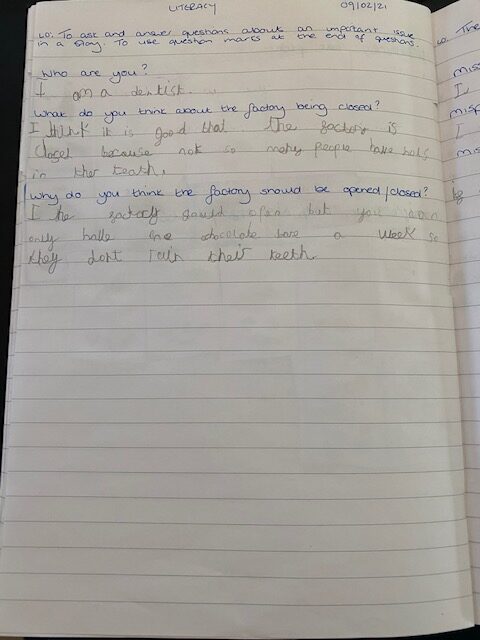 LITERACY 09/02/21
LO: To ask and answer questions about an important issue
in a story. To use question marks at the end of questions.
Who are you?
I am a dentist.
What do you think about the factory being closed?
I think it is good that the factory is
closet because not so meny people have hols
in ther teath.
Why do you think the factory should be opened/closed?
I the open but you
only one chocolate bare a week so
they dont their teeth.
LO: The
misp
I
misp
I
mis